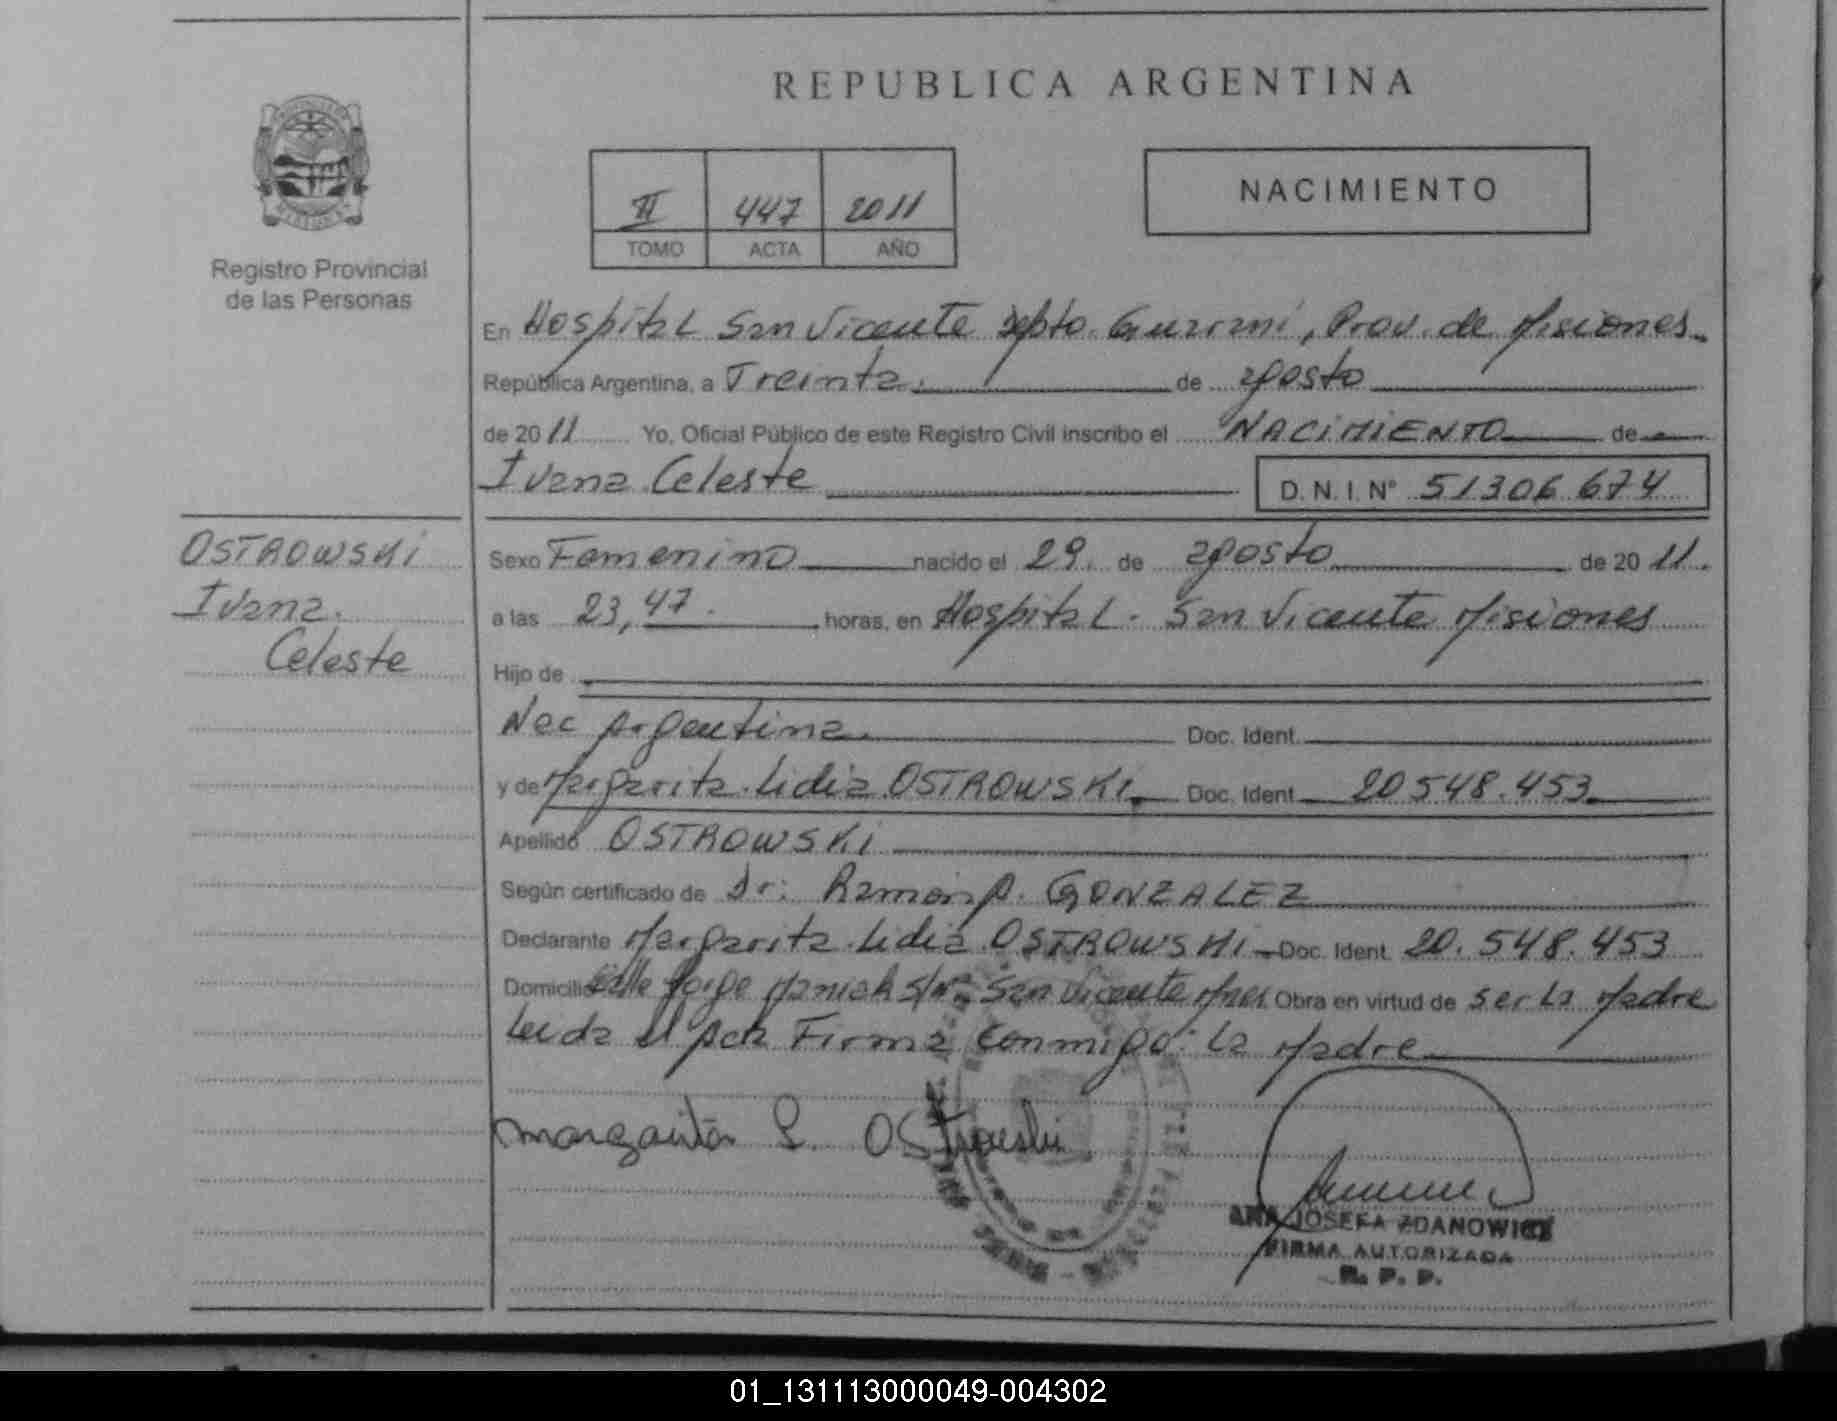 REPUBLICA ARGENTINA
II 447 2011
TOMO ACTA AÑO
NACIMIENTO
Registro Provincial
de las Personas
En Hospital San Vicente Depto. Guarani, Prov. de Misiones
República Argentina, a Treinta. de agosto
de 2011 Yo, Oficial Público de este Registro Civil inscribo el NACIMIENTO de
Ivana Celeste D.N.I. Nº 51306.674
OSTROWSKi
Ivana.
Celeste
Sexo Femenino nacido el 29. de agosto de 2011.
a las 23,47. horas, en Hospital. San Vicente Misiones
Hijo de
Nac Argentina. Doc. Ident.
y de Margarita Lidia OSTROWSKi. Doc. Ident. 20548.453
Apellido OSTROWSKi
Según certificado de Dr: Ramon A. GONZALEZ
Declarante Margarita Lidia OSTROWSKi Doc. Ident. 20.548.453
Domicilio Calle Jorge s/nº San Vicente Mnes Obra en virtud de ser La Madre
Leida el Acta Firma Conmigo: La Madre
Margarita L. Ostrowski
ANA JOSEFA ZDANOWICZ
FIRMA AUTORIZADA
R. P. P.
01_131113000049-004302